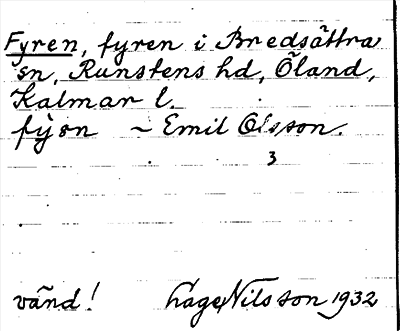 Fyren, fyren i Bredsättra
sn, Runstens hd, Öland,
Kalmar l.
fy̌rn ~ Emil Olsson.
3
vänd! Håge Nilsson 1932